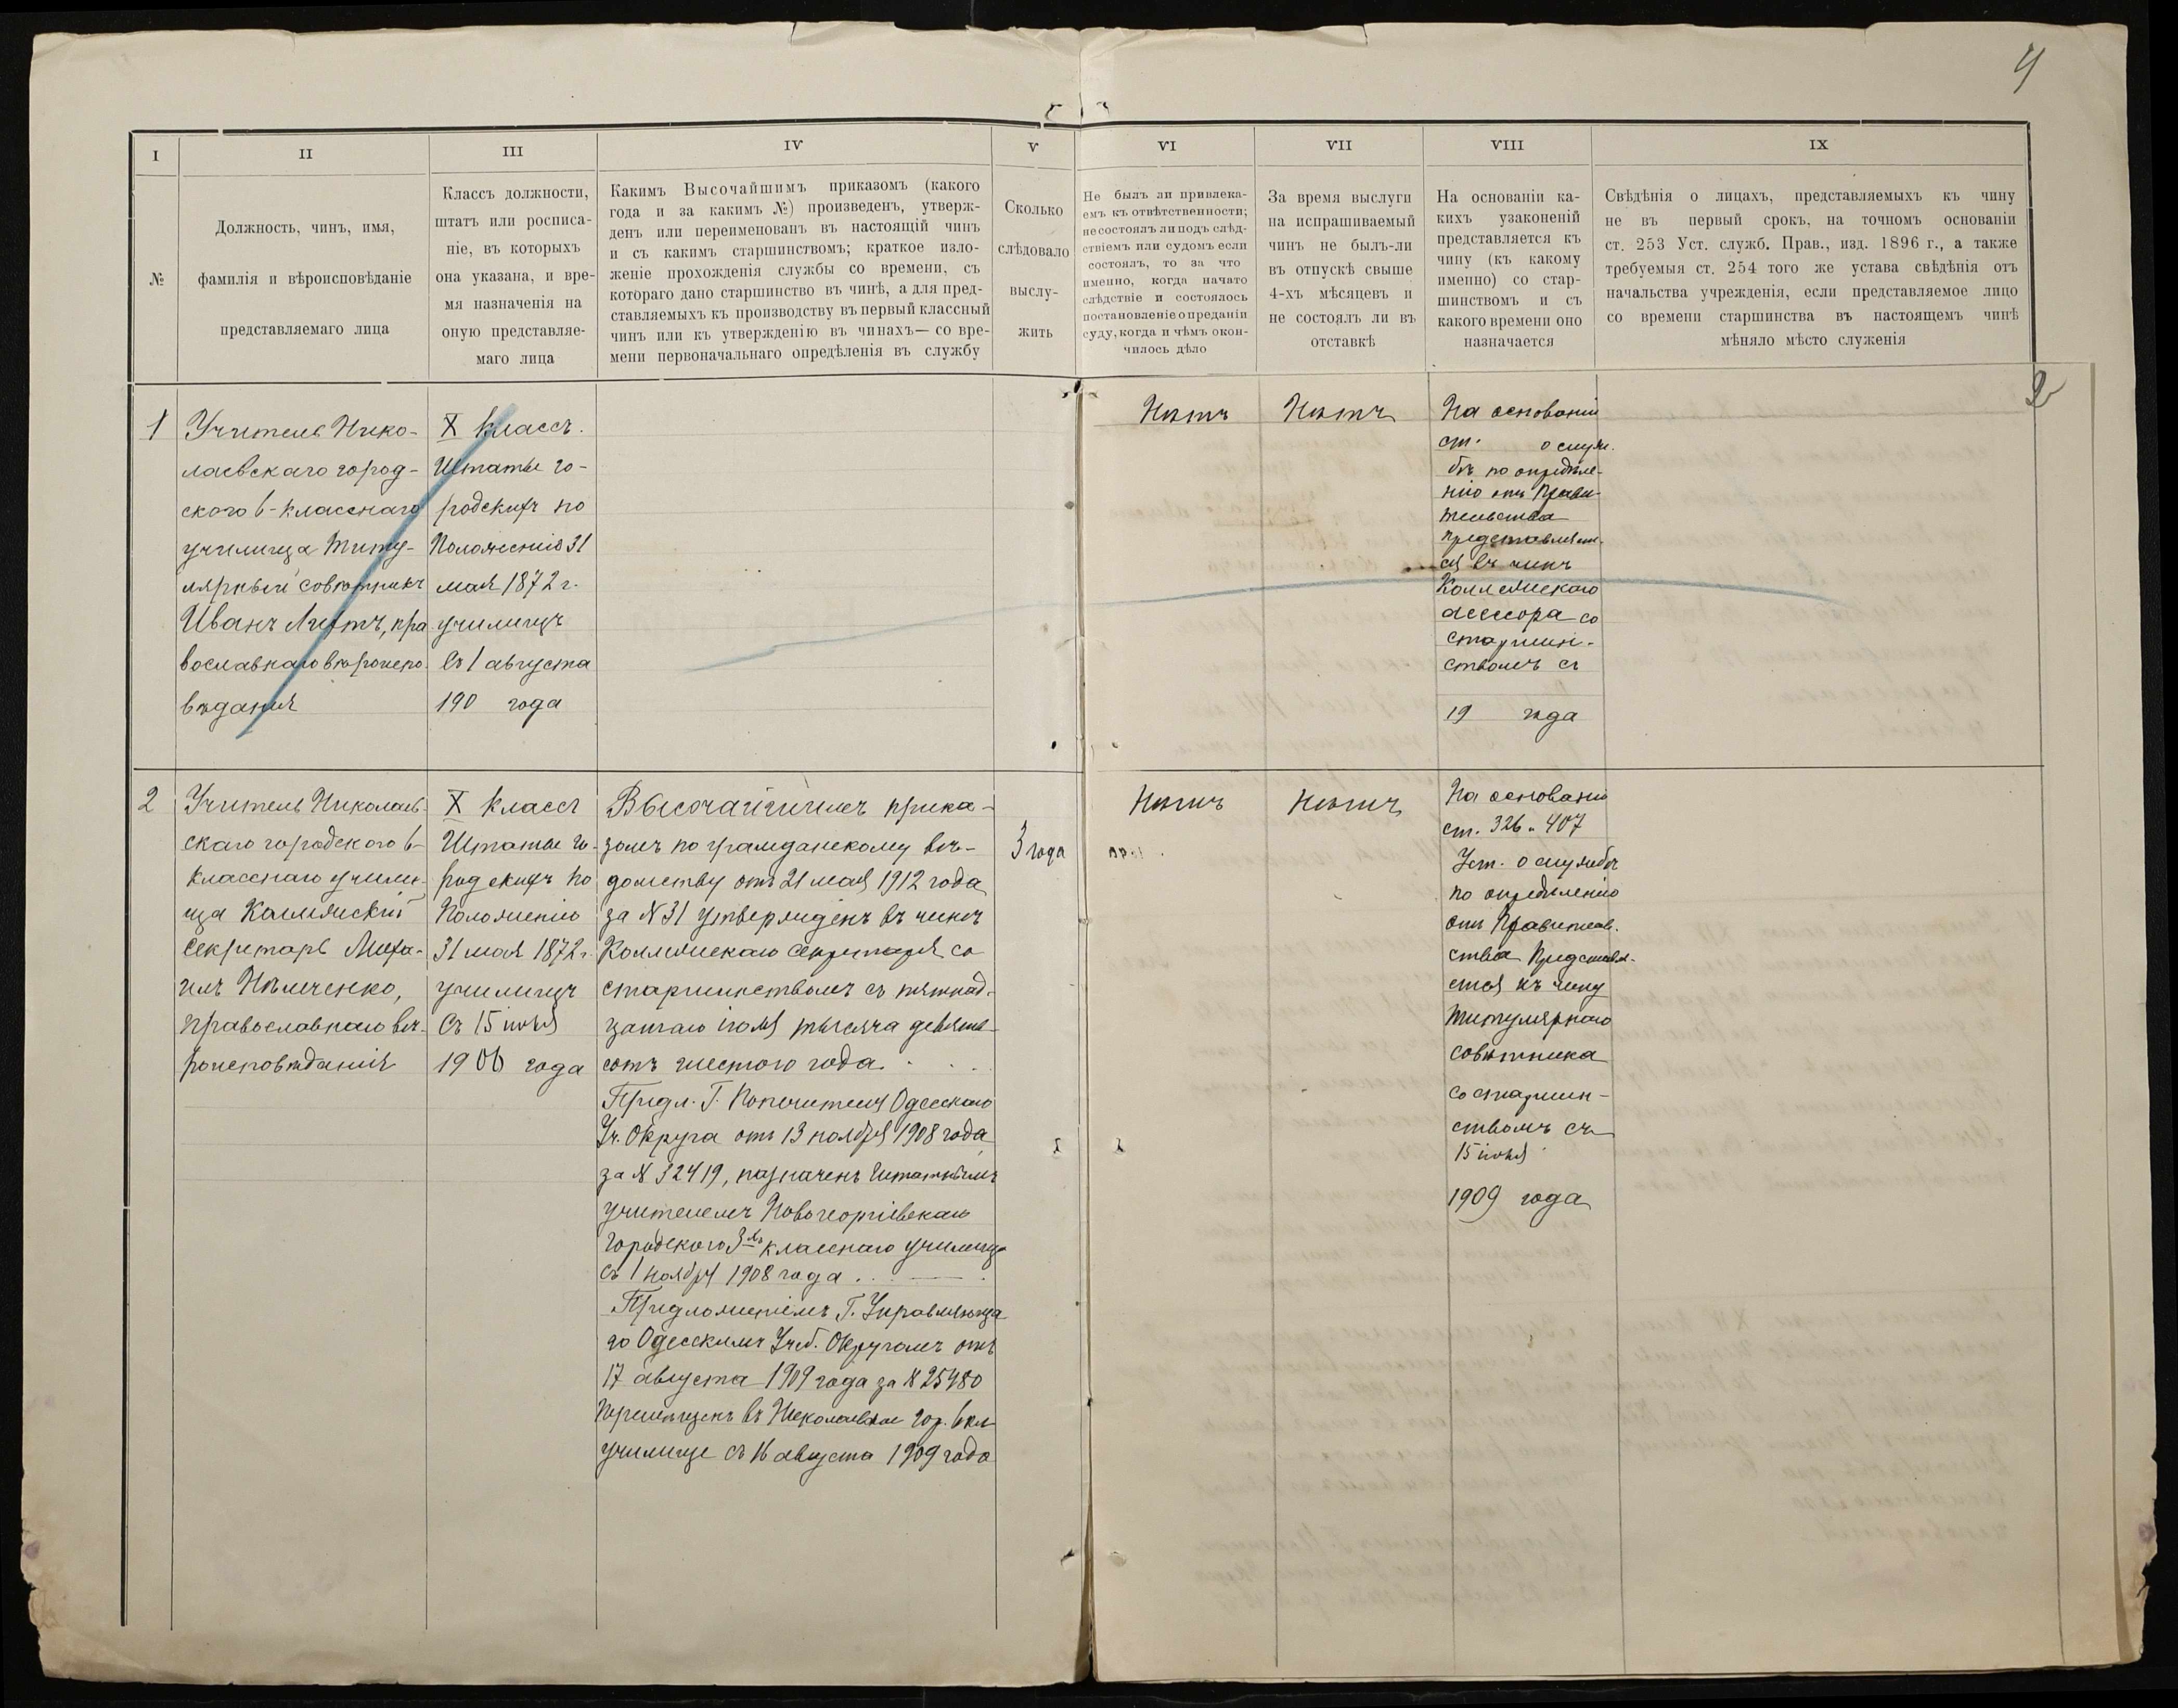 4
I
II
III
IV
V
VI
VII
VIII
IX
№
Должность, чинъ, имя,
фамилія и вѣроисповѣданіе
представляемаго лица
Классъ должности,
штатъ или росписа-
ніе, въ которыхъ
она указана, и вре-
мя назначенія на
оную представляе-
маго лица
Какимъ Высочайшимъ приказомъ (какого
года и за какимъ №) произведенъ, утверж-
денъ или переименованъ въ настоящій чинъ
и съ какимъ старшинствомъ; краткое изло-
женіе прохожденія службы со времени, съ
котораго дано старшинство въ чинѣ, а для пред-
ставляемыхъ къ производству въ первый классный
чинъ или къ утвержденію въ чинахъ—со вре-
мени первоначальнаго опредѣленія въ службу
Сколько
слѣдовало
выслу-
жить
Не былъ ли привлека-
емъ къ отвѣтственности;
не состоялъ ли подъ слѣд-
ствіемъ или судомъ если
состоялъ, то за что
именно, когда начато
слѣдствіе и состоялось
постановленіе о преданіи
суду, когда и чѣмъ окон-
чилось дѣло
За время выслуги
на испрашиваемый
чинъ не былъ-ли
въ отпускѣ свыше
4-хъ мѣсяцевъ и
не состоялъ ли въ
отставкѣ
На основаніи ка-
кихъ узаконеній
представляется къ
чину (къ какому
именно) со стар-
шинствомъ и съ
какого времени оно
назначается
Свѣдѣнія о лицахъ, представляемыхъ къ чину
не въ первый срокъ, на точномъ основаніи
ст. 253 Уст. служб. Прав., изд. 1896 г., а также
требуемыя ст. 254 того же устава свѣдѣнія отъ
начальства учрежденія, если представляемое лицо
со времени старшинства въ настоящемъ чинѣ
мѣняло мѣсто служенія
2
1
Учитель Нико-
лаевскаго город-
ского 6-класснаго
училища Титу-
лярный совѣтникъ
Иванъ Литъ, пра
вославнаго вѣроиспо
вѣданія
X классъ.
Штаты го-
родскихъ по
Положенію 31
мая 1872 г.
училищъ
съ 1 августа
190 года
Нѣтъ
Нѣтъ
На основаніи
ст. о служ.
бѣ по опредѣле-
нію отъ Прави-
тельства
представляет-
ся въ чинъ
Коллежскаго
асессора со
старшин-
ствомъ съ
19 года
2
Учитель Николаев-
скаго городского 6-
класснаго учили-
ща Коллежскій
секретарь Миха-
илъ Нѣмченко,
православнаго вѣ-
роисповѣданія
X классъ
Штаты го-
родскихъ по
Положенію
31 мая 1872 г.
училищъ
съ 15 іюля
1906 года
Высочайшимъ прика-
зомъ по гражданскому вѣ-
домству отъ 21 мая 1912 года
за № 31 утвержденъ въ чинѣ
Коллежскаго секретаря со
старшинствомъ съ пятнад-
цатаго іюля тысяча девять-
сотъ шестого года.
Предл. Г. Попечителя Одесскаго
Уч. Округа отъ 13 ноября 1908 года,
за № 32419, назначенъ штатнымъ
учителемъ Новогеоргіевскаго
городского 3-хъ класснаго училища
съ 1 ноября 1908 года.
Предложеніемъ Г. Управляюща
го Одесскимъ Учеб. Округомъ отъ
17 августа 1909 года за № 25480
перемѣщенъ въ Николаевское гор. 6 кл
училище съ 16 августа 1909 года
3 года
Нѣтъ
Нѣтъ
На основаніи
ст. 326 и 407
Уст. о службѣ
по опредѣленію
отъ Правитель-
ства Представля-
ется къ чину
титулярнаго
совѣтника
со старшин-
ствомъ съ
15 іюля
1909 года